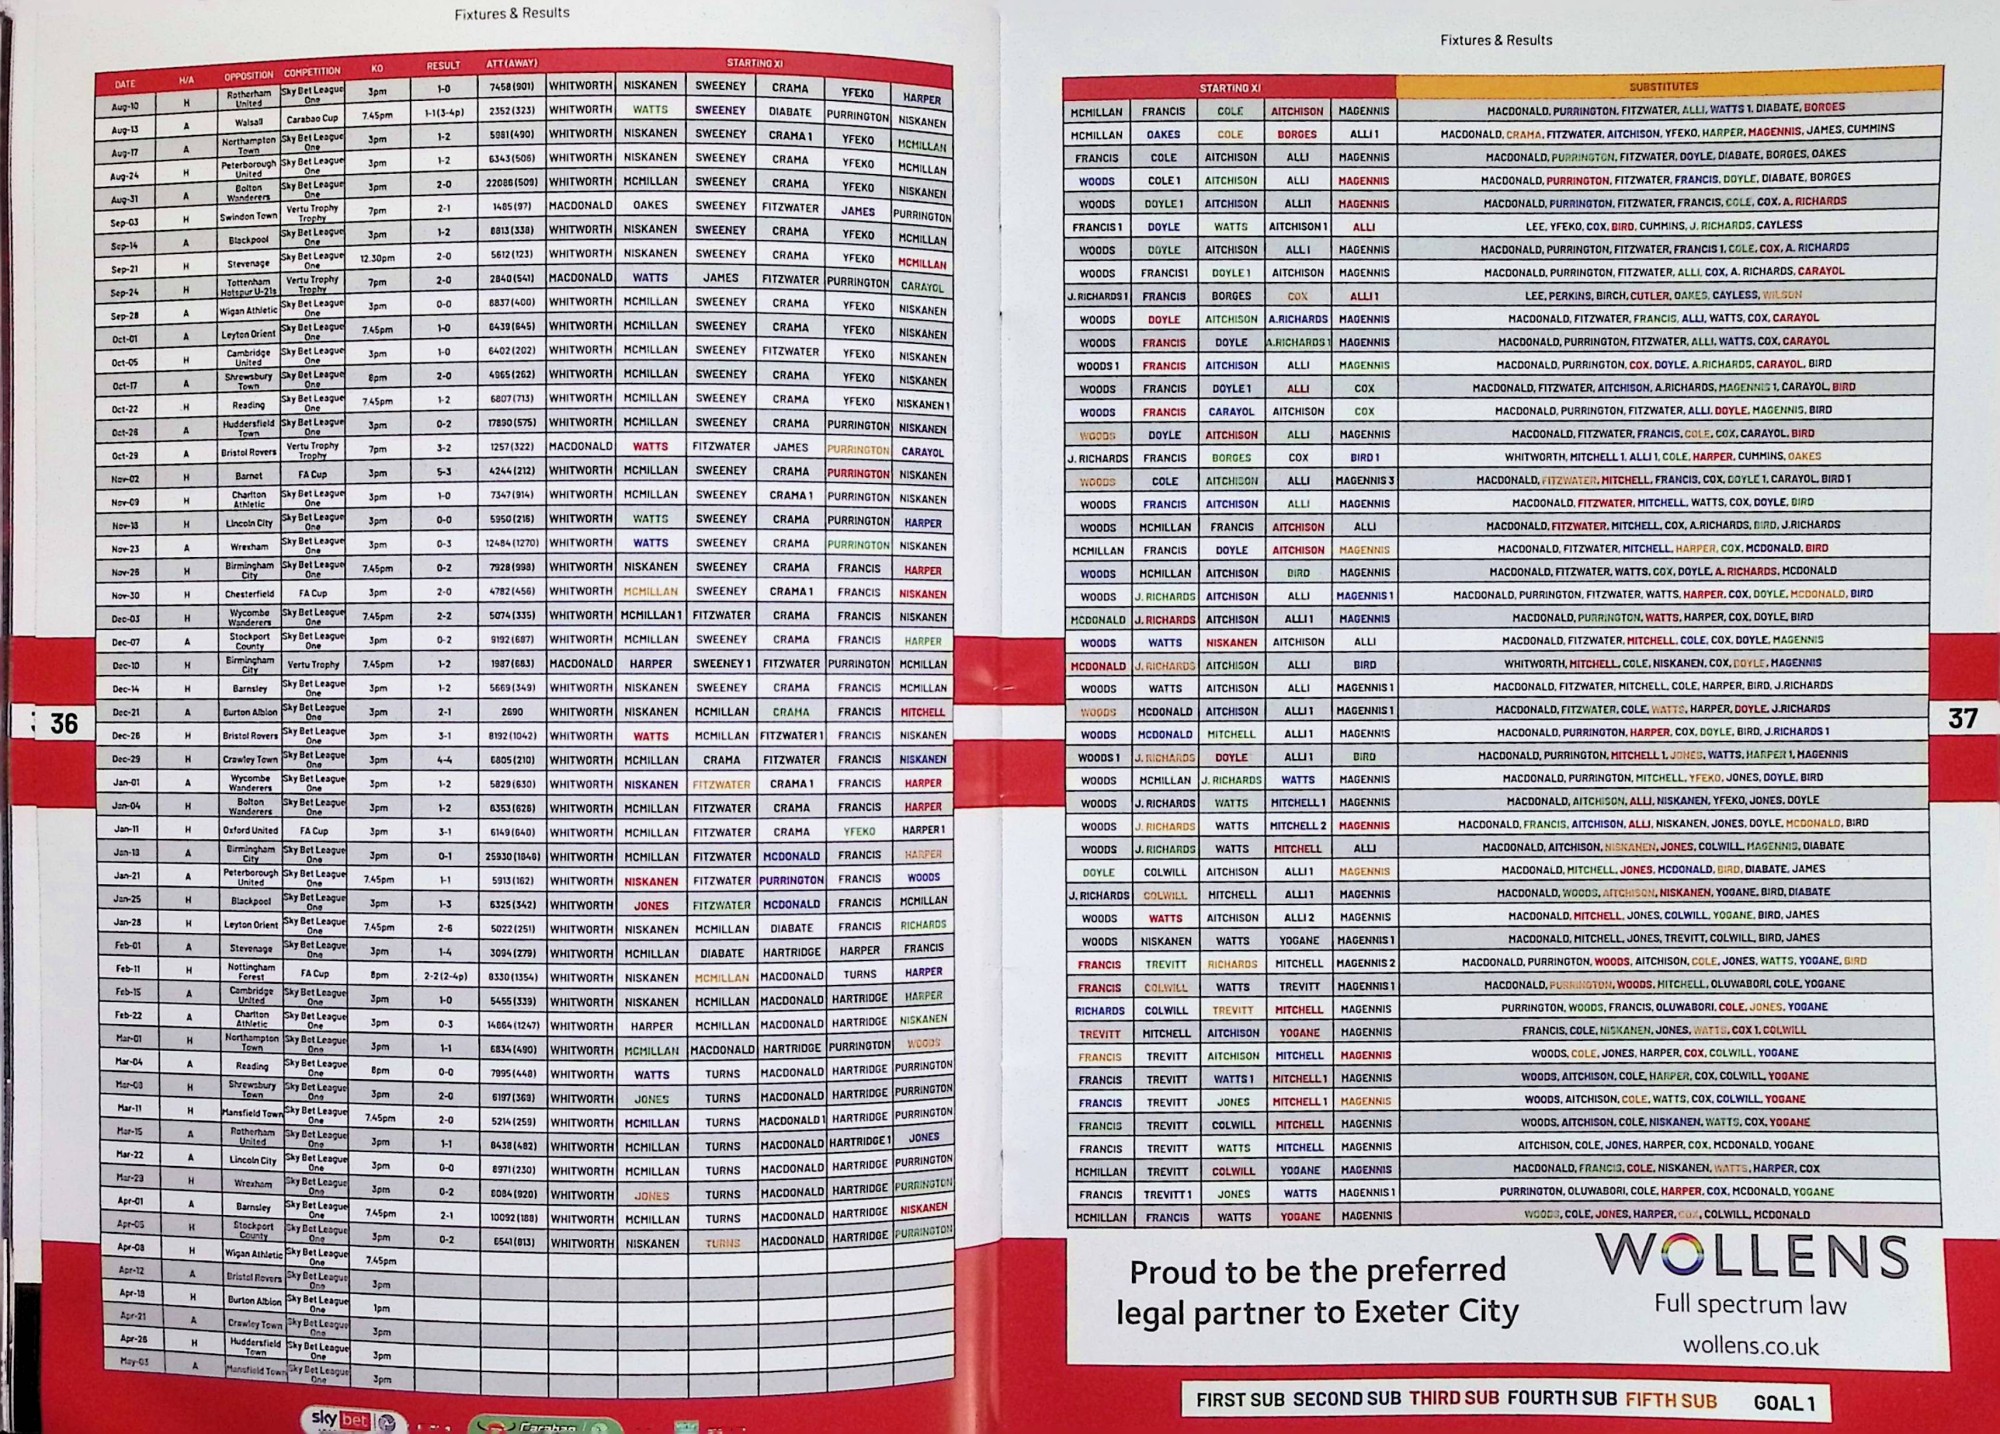 Fixtures & Results
DATE H/A OPPOSITION COMPETITION KO RESULT ATT(AWAY) STARTING XI
Aug-10 H Rotherham United Sky Bet League One 3pm 1-0 7458(901) WHITWORTH NISKANEN SWEENEY CRAMA YFEKO HARPER
Aug-13 A Walsall Carabao Cup 7.45pm 1-1(3-4p) 2352(323) WHITWORTH WATTS SWEENEY DIABATE PURRINGTON NISKANEN
Aug-17 A Northampton Town Sky Bet League One 3pm 1-2 5981(490) WHITWORTH NISKANEN SWEENEY CRAMA 1 YFEKO MCMILLAN
Aug-24 H Peterborough United Sky Bet League One 3pm 1-2 6343(506) WHITWORTH NISKANEN SWEENEY CRAMA YFEKO MCMILLAN
Aug-31 A Bolton Wanderers Sky Bet League One 3pm 2-0 22086(509) WHITWORTH MCMILLAN SWEENEY CRAMA YFEKO NISKANEN
Sep-03 H Swindon Town Vertu Trophy Trophy 7pm 2-1 1485(97) MACDONALD OAKES SWEENEY FITZWATER JAMES PURRINGTON
Sep-14 A Blackpool Sky Bet League One 3pm 1-2 8813(338) WHITWORTH NISKANEN SWEENEY CRAMA YFEKO MCMILLAN
Sep-21 H Stevenage Sky Bet League One 12.30pm 2-0 5612(123) WHITWORTH NISKANEN SWEENEY CRAMA YFEKO MCMILLAN
Sep-24 H Tottenham Hotspur U-21s Vertu Trophy Trophy 7pm 2-0 2840(541) MACDONALD WATTS JAMES FITZWATER PURRINGTON CARAYOL
Sep-28 A Wigan Athletic Sky Bet League One 3pm 0-0 8837(400) WHITWORTH MCMILLAN SWEENEY CRAMA YFEKO NISKANEN
Oct-01 A Leyton Orient Sky Bet League One 7.45pm 1-0 6439(645) WHITWORTH MCMILLAN SWEENEY CRAMA YFEKO NISKANEN
Oct-05 H Cambridge United Sky Bet League One 3pm 1-0 6402(202) WHITWORTH MCMILLAN SWEENEY FITZWATER YFEKO NISKANEN
Oct-17 A Shrewsbury Town Sky Bet League One 8pm 2-0 4965(262) WHITWORTH MCMILLAN SWEENEY CRAMA YFEKO NISKANEN
Oct-22 H Reading Sky Bet League One 7.45pm 1-2 6807(713) WHITWORTH MCMILLAN SWEENEY CRAMA YFEKO NISKANEN 1
Oct-26 A Huddersfield Town Sky Bet League One 3pm 0-2 17890(575) WHITWORTH MCMILLAN SWEENEY CRAMA PURRINGTON NISKANEN
Oct-29 A Bristol Rovers Vertu Trophy Trophy 7pm 3-2 1257(322) MACDONALD WATTS FITZWATER JAMES PURRINGTON CARAYOL
Nov-02 H Barnet FA Cup 3pm 5-3 4244(212) WHITWORTH MCMILLAN SWEENEY CRAMA PURRINGTON NISKANEN
Nov-09 H Charlton Athletic Sky Bet League One 3pm 1-0 7347(914) WHITWORTH MCMILLAN SWEENEY CRAMA 1 PURRINGTON NISKANEN
Nov-18 H Lincoln City Sky Bet League One 3pm 0-0 5950(216) WHITWORTH WATTS SWEENEY CRAMA PURRINGTON HARPER
Nov-23 A Wrexham Sky Bet League One 3pm 0-3 12484(1270) WHITWORTH WATTS SWEENEY CRAMA PURRINGTON NISKANEN
Nov-26 H Birmingham City Sky Bet League One 7.45pm 0-2 7928(998) WHITWORTH NISKANEN SWEENEY CRAMA FRANCIS HARPER
Nov-30 H Chesterfield FA Cup 3pm 2-0 4782(456) WHITWORTH MCMILLAN SWEENEY CRAMA 1 FRANCIS NISKANEN
Dec-03 H Wycombe Wanderers Sky Bet League One 7.45pm 2-2 5074(335) WHITWORTH MCMILLAN 1 FITZWATER CRAMA FRANCIS NISKANEN
Dec-07 A Stockport County Sky Bet League One 3pm 0-2 9192(687) WHITWORTH MCMILLAN SWEENEY CRAMA FRANCIS HARPER
Dec-10 H Birmingham City Vertu Trophy 7.45pm 1-2 1987(683) MACDONALD HARPER SWEENEY 1 FITZWATER PURRINGTON MCMILLAN
Dec-14 H Barnsley Sky Bet League One 3pm 1-2 5669(349) WHITWORTH NISKANEN SWEENEY CRAMA FRANCIS MCMILLAN
Dec-21 A Burton Albion Sky Bet League One 3pm 2-1 2690 WHITWORTH NISKANEN MCMILLAN CRAMA FRANCIS MITCHELL
Dec-26 H Bristol Rovers Sky Bet League One 3pm 3-1 8192(1042) WHITWORTH WATTS MCMILLAN FITZWATER 1 FRANCIS NISKANEN
Dec-29 H Crawley Town Sky Bet League One 3pm 4-4 6805(210) WHITWORTH MCMILLAN CRAMA FITZWATER FRANCIS NISKANEN
Jan-01 A Wycombe Wanderers Sky Bet League One 3pm 1-2 5829(630) WHITWORTH NISKANEN FITZWATER CRAMA 1 FRANCIS HARPER
Jan-04 H Bolton Wanderers Sky Bet League One 3pm 1-2 6353(626) WHITWORTH MCMILLAN FITZWATER CRAMA FRANCIS HARPER
Jan-11 H Oxford United FA Cup 3pm 3-1 6149(640) WHITWORTH MCMILLAN FITZWATER CRAMA YFEKO HARPER 1
Jan-18 A Birmingham City Sky Bet League One 3pm 0-1 25930(1848) WHITWORTH MCMILLAN FITZWATER MCDONALD FRANCIS HARPER
Jan-21 A Peterborough United Sky Bet League One 7.45pm 1-1 5913(162) WHITWORTH NISKANEN FITZWATER PURRINGTON FRANCIS WOODS
Jan-25 H Blackpool Sky Bet League One 3pm 1-3 6325(342) WHITWORTH JONES FITZWATER MCDONALD FRANCIS MCMILLAN
Jan-28 H Leyton Orient Sky Bet League One 7.45pm 2-6 5022(251) WHITWORTH NISKANEN MCMILLAN DIABATE FRANCIS RICHARDS
Feb-01 A Stevenage Sky Bet League One 3pm 1-4 3094(279) WHITWORTH MCMILLAN DIABATE HARTRIDGE HARPER FRANCIS
Feb-11 H Nottingham Forest FA Cup 8pm 2-2(2-4p) 8330(1354) WHITWORTH NISKANEN MCMILLAN MACDONALD TURNS HARPER
Feb-15 A Cambridge United Sky Bet League One 3pm 1-0 5455(339) WHITWORTH NISKANEN MCMILLAN MACDONALD HARTRIDGE HARPER
Feb-22 A Charlton Athletic Sky Bet League One 3pm 0-3 14664(1247) WHITWORTH HARPER MCMILLAN MACDONALD HARTRIDGE NISKANEN
Mar-01 H Northampton Town Sky Bet League One 3pm 1-1 6834(490) WHITWORTH MCMILLAN MACDONALD HARTRIDGE PURRINGTON WOODS
Mar-04 A Reading Sky Bet League One 8pm 0-0 7995(448) WHITWORTH WATTS TURNS MACDONALD HARTRIDGE PURRINGTON
Mar-08 H Shrewsbury Town Sky Bet League One 3pm 2-0 6197(369) WHITWORTH JONES TURNS MACDONALD HARTRIDGE PURRINGTON
Mar-11 H Mansfield Town Sky Bet League One 7.45pm 2-0 5214(259) WHITWORTH MCMILLAN TURNS MACDONALD 1 HARTRIDGE PURRINGTON
Mar-15 A Rotherham United Sky Bet League One 3pm 1-1 8438(482) WHITWORTH MCMILLAN TURNS MACDONALD HARTRIDGE 1 JONES
Mar-22 A Lincoln City Sky Bet League One 3pm 0-0 8971(230) WHITWORTH MCMILLAN TURNS MACDONALD HARTRIDGE PURRINGTON
Mar-29 H Wrexham Sky Bet League One 3pm 0-2 8084(920) WHITWORTH JONES TURNS MACDONALD HARTRIDGE PURRINGTON
Apr-01 A Barnsley Sky Bet League One 7.45pm 2-1 10092(188) WHITWORTH MCMILLAN TURNS MACDONALD HARTRIDGE NISKANEN
Apr-05 H Stockport County Sky Bet League One 3pm 0-2 6541(813) WHITWORTH NISKANEN TURNS MACDONALD HARTRIDGE PURRINGTON
Apr-08 H Wigan Athletic Sky Bet League One 7.45pm
Apr-12 A Bristol Rovers Sky Bet League One 3pm
Apr-18 H Burton Albion Sky Bet League One 1pm
Apr-21 A Crawley Town Sky Bet League One 3pm
Apr-26 H Huddersfield Town Sky Bet League One 3pm
May-03 A Mansfield Town Sky Bet League One 3pm
36
sky bet
Carabao
Fixtures & Results
STARTING XI SUBSTITUTES
MCMILLAN FRANCIS COLE AITCHISON MAGENNIS MACDONALD, PURRINGTON, FITZWATER, ALLI, WATTS 1, DIABATE, BORGES
MCMILLAN OAKES COLE BORGES ALLI 1 MACDONALD, CRAMA, FITZWATER, AITCHISON, YFEKO, HARPER, MAGENNIS, JAMES, CUMMINS
FRANCIS COLE AITCHISON ALLI MAGENNIS MACDONALD, PURRINGTON, FITZWATER, DOYLE, DIABATE, BORGES, OAKES
WOODS COLE 1 AITCHISON ALLI MAGENNIS MACDONALD, PURRINGTON, FITZWATER, FRANCIS, DOYLE, DIABATE, BORGES
WOODS DOYLE 1 AITCHISON ALLI1 MAGENNIS MACDONALD, PURRINGTON, FITZWATER, FRANCIS, COLE, COX, A. RICHARDS
FRANCIS 1 DOYLE WATTS AITCHISON 1 ALLI LEE, YFEKO, COX, BIRD, CUMMINS, J. RICHARDS, CAYLESS
WOODS DOYLE AITCHISON ALL I MAGENNIS MACDONALD, PURRINGTON, FITZWATER, FRANCIS 1, COLE, COX, A. RICHARDS
WOODS FRANCIS1 DOYLE 1 AITCHISON MAGENNIS MACDONALD, PURRINGTON, FITZWATER, ALLI, COX, A. RICHARDS, CARAYOL
J. RICHARDS 1 FRANCIS BORGES COX ALLI 1 LEE, PERKINS, BIRCH, CUTLER, OAKES, CAYLESS, WILSON
WOODS DOYLE AITCHISON A.RICHARDS MAGENNIS MACDONALD, FITZWATER, FRANCIS, ALLI, WATTS, COX, CARAYOL
WOODS FRANCIS DOYLE A.RICHARDS 1 MAGENNIS MACDONALD, PURRINGTON, FITZWATER, ALLI, WATTS, COX, CARAYOL
WOODS 1 FRANCIS AITCHISON ALLI MAGENNIS MACDONALD, PURRINGTON, COX, DOYLE, A.RICHARDS, CARAYOL, BIRD
WOODS FRANCIS DOYLE 1 ALLI COX MACDONALD, FITZWATER, AITCHISON, A.RICHARDS, MAGENNIS 1, CARAYOL, BIRD
WOODS FRANCIS CARAYOL AITCHISON COX MACDONALD, PURRINGTON, FITZWATER, ALLI, DOYLE, MAGENNIS, BIRD
WOODS DOYLE AITCHISON ALLI MAGENNIS MACDONALD, FITZWATER, FRANCIS, COLE, COX, CARAYOL, BIRD
J. RICHARDS FRANCIS BORGES COX BIRD 1 WHITWORTH, MITCHELL 1, ALLI 1, COLE, HARPER, CUMMINS, OAKES
WOODS COLE AITCHISON ALLI MAGENNIS 3 MACDONALD, FITZWATER, MITCHELL, FRANCIS, COX, DOYLE 1, CARAYOL, BIRD 1
WOODS FRANCIS AITCHISON ALLI MAGENNIS MACDONALD, FITZWATER, MITCHELL, WATTS, COX, DOYLE, BIRD
WOODS MCMILLAN FRANCIS AITCHISON ALLI MACDONALD, FITZWATER, MITCHELL, COX, A.RICHARDS, BIRD, J.RICHARDS
MCMILLAN FRANCIS DOYLE AITCHISON MAGENNIS MACDONALD, FITZWATER, MITCHELL, HARPER, COX, MCDONALD, BIRD
WOODS MCMILLAN AITCHISON BIRD MAGENNIS MACDONALD, FITZWATER, WATTS, COX, DOYLE, A. RICHARDS, MCDONALD
WOODS J. RICHARDS AITCHISON ALLI MAGENNIS 1 MACDONALD, PURRINGTON, FITZWATER, WATTS, HARPER, COX, DOYLE, MCDONALD, BIRD
MCDONALD J. RICHARDS AITCHISON ALLI 1 MAGENNIS MACDONALD, PURRINGTON, WATTS, HARPER, COX, DOYLE, BIRD
WOODS WATTS NISKANEN AITCHISON ALLI MACDONALD, FITZWATER, MITCHELL, COLE, COX, DOYLE, MAGENNIS
MCDONALD J. RICHARDS AITCHISON ALLI BIRD WHITWORTH, MITCHELL, COLE, NISKANEN, COX, DOYLE, MAGENNIS
WOODS WATTS AITCHISON ALLI MAGENNIS 1 MACDONALD, FITZWATER, MITCHELL, COLE, HARPER, BIRD, J.RICHARDS
WOODS MCDONALD AITCHISON ALLI 1 MAGENNIS 1 MACDONALD, FITZWATER, COLE, WATTS, HARPER, DOYLE, J.RICHARDS
WOODS MCDONALD MITCHELL ALLI 1 MAGENNIS MACDONALD, PURRINGTON, HARPER, COX, DOYLE, BIRD, J.RICHARDS 1
WOODS 1 J. RICHARDS DOYLE ALLI 1 BIRD MACDONALD, PURRINGTON, MITCHELL 1, JONES, WATTS, HARPER 1, MAGENNIS
WOODS MCMILLAN J. RICHARDS WATTS MAGENNIS MACDONALD, PURRINGTON, MITCHELL, YFEKO, JONES, DOYLE, BIRD
WOODS J. RICHARDS WATTS MITCHELL 1 MAGENNIS MACDONALD, AITCHISON, ALLI, NISKANEN, YFEKO, JONES, DOYLE
WOODS J. RICHARDS WATTS MITCHELL 2 MAGENNIS MACDONALD, FRANCIS, AITCHISON, ALLI, NISKANEN, JONES, DOYLE, MCDONALD, BIRD
WOODS J. RICHARDS WATTS MITCHELL ALLI MACDONALD, AITCHISON, NISKANEN, JONES, COLWILL, MAGENNIS, DIABATE
DOYLE COLWILL AITCHISON ALLI 1 MAGENNIS MACDONALD, MITCHELL, JONES, MCDONALD, BIRD, DIABATE, JAMES
J. RICHARDS COLWILL MITCHELL ALLI 1 MAGENNIS MACDONALD, WOODS, AITCHISON, NISKANEN, YOGANE, BIRD, DIABATE
WOODS WATTS AITCHISON ALLI 2 MAGENNIS MACDONALD, MITCHELL, JONES, COLWILL, YOGANE, BIRD, JAMES
WOODS NISKANEN WATTS YOGANE MAGENNIS 1 MACDONALD, MITCHELL, JONES, TREVITT, COLWILL, BIRD, JAMES
FRANCIS TREVITT RICHARDS MITCHELL MAGENNIS 2 MACDONALD, PURRINGTON, WOODS, AITCHISON, COLE, JONES, WATTS, YOGANE, BIRD
FRANCIS COLWILL WATTS TREVITT MAGENNIS 1 MACDONALD, PURRINGTON, WOODS, MITCHELL, OLUWABORI, COLE, YOGANE
RICHARDS COLWILL TREVITT MITCHELL MAGENNIS PURRINGTON, WOODS, FRANCIS, OLUWABORI, COLE, JONES, YOGANE
TREVITT MITCHELL AITCHISON YOGANE MAGENNIS FRANCIS, COLE, NISKANEN, JONES, WATTS, COX 1, COLWILL
FRANCIS TREVITT AITCHISON MITCHELL MAGENNIS WOODS, COLE, JONES, HARPER, COX, COLWILL, YOGANE
FRANCIS TREVITT WATTS 1 MITCHELL 1 MAGENNIS WOODS, AITCHISON, COLE, HARPER, COX, COLWILL, YOGANE
FRANCIS TREVITT JONES MITCHELL 1 MAGENNIS WOODS, AITCHISON, COLE, WATTS, COX, COLWILL, YOGANE
FRANCIS TREVITT COLWILL MITCHELL MAGENNIS WOODS, AITCHISON, COLE, NISKANEN, WATTS, COX, YOGANE
FRANCIS TREVITT WATTS MITCHELL MAGENNIS AITCHISON, COLE, JONES, HARPER, COX, MCDONALD, YOGANE
MCMILLAN TREVITT COLWILL YOGANE MAGENNIS MACDONALD, FRANCIS, COLE, NISKANEN, WATTS, HARPER, COX
FRANCIS TREVITT 1 JONES WATTS MAGENNIS 1 PURRINGTON, OLUWABORI, COLE, HARPER, COX, MCDONALD, YOGANE
MCMILLAN FRANCIS WATTS YOGANE MAGENNIS WOODS, COLE, JONES, HARPER, COX, COLWILL, MCDONALD
37
Proud to be the preferred
legal partner to Exeter City
WOLLENS
Full spectrum law
wollens.co.uk
FIRST SUB SECOND SUB THIRD SUB FOURTH SUB FIFTH SUB GOAL 1